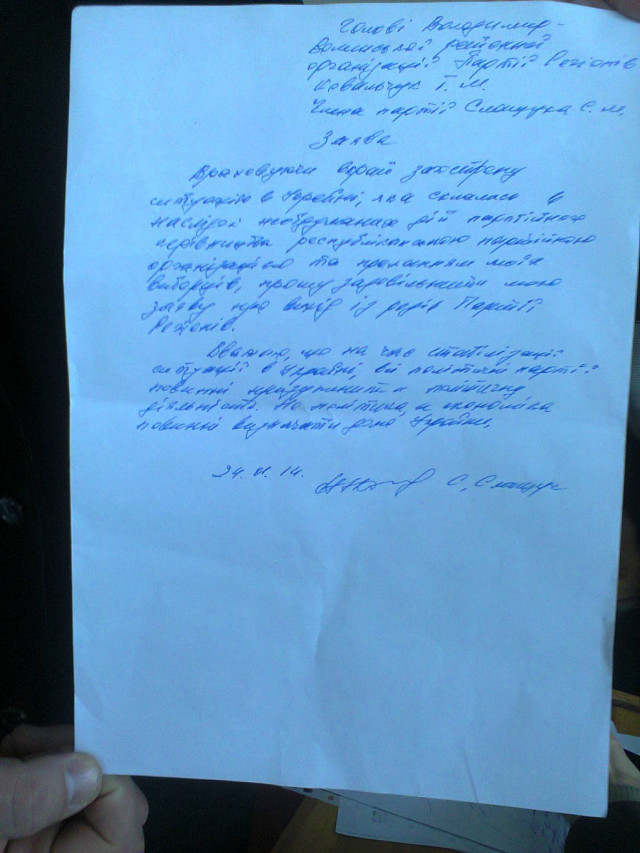 Голові Володимир-
Волинської районної
організації Партії Регіонів
Ковальчук І. М.
Члена партії Слащука С. М.
Заява
Враховуючи вкрай загострену
ситуацію в Україні, яка склалась в
наслідок необдуманих дій партійного
керівництва республіканською партійною
організацією та проханням моїх
виборців, прошу задовільнити мою
заяву про вихід із рядів Партії
Регіонів.
Вважаю, що на час стабілізації
ситуації в Україні, всі політичні партії
повинні призупинити політичну
діяльність. Не політика, а економіка
повинні визначати долю України.
24. 01. 14.
С. Слащук